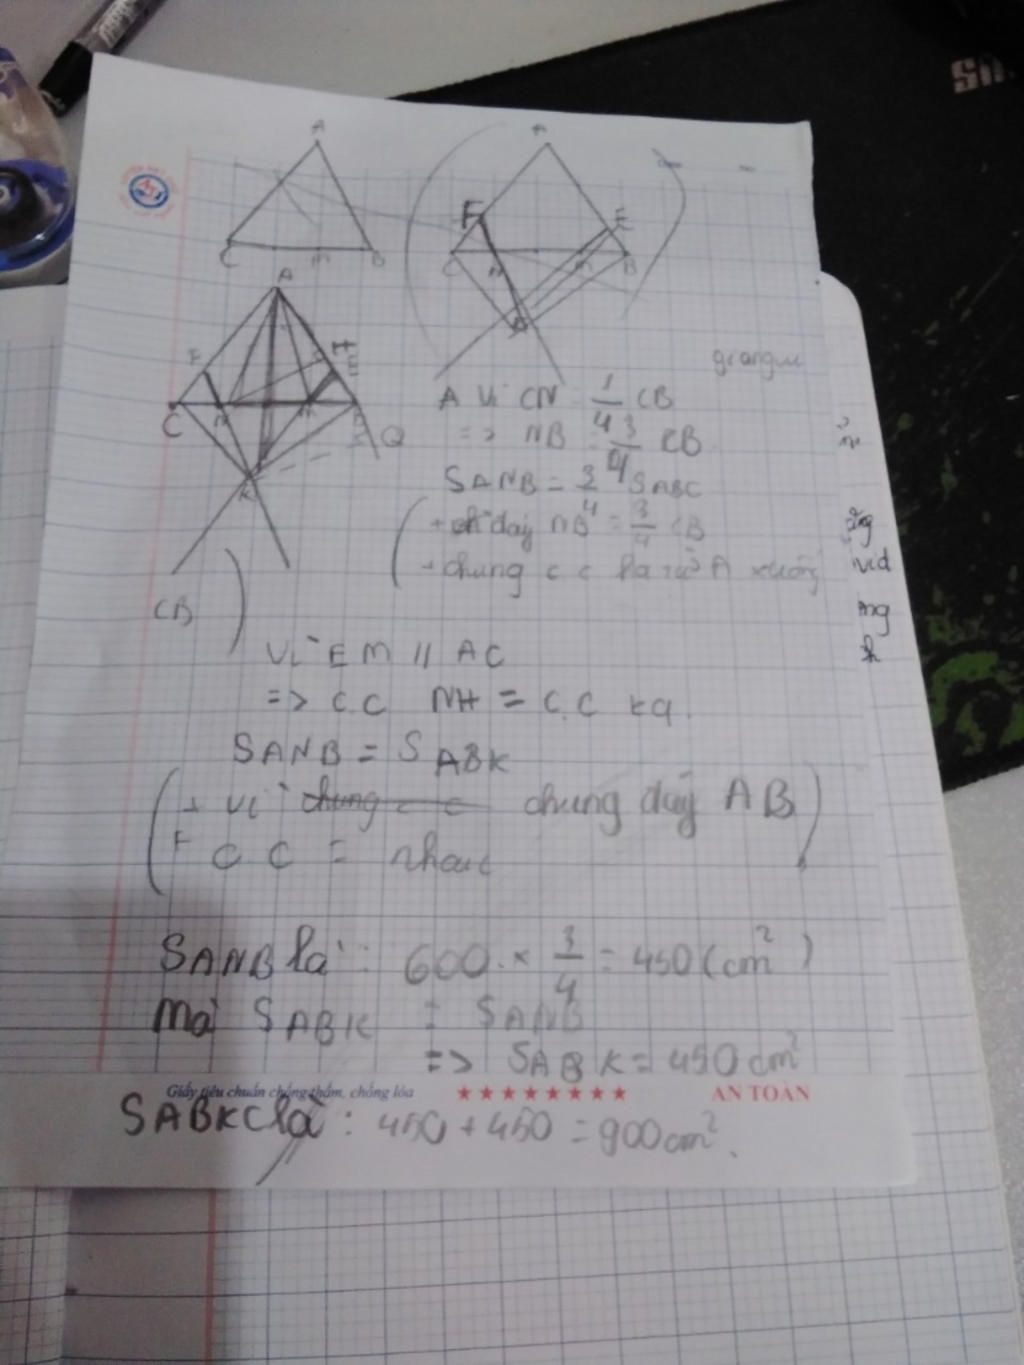 A
C
M
B
A
F
E
C
N
M
B
A
F
E
C
N
Q
K
Vì CN = 1/4 CB
=> NB = 3/4 CB
SANB = 3/4 SABC
đáy NB = 3/4 CB
+ chung c c hạ từ A xuống
CB )
Vì EM // AC
=> C.C NH = C.C KQ
SANB = S ABK
( + Vì chung c c chung đáy AB )
+ C C = nhau
SANB là : 600 × 3/4 = 450 (cm²)
Mà SABK = SANB
=> SABK = 450 cm²
Giấy tiêu chuẩn chống thấm, chống lóa ★★★★★★★★ AN TOÀN
SABKC là : 450 + 450 = 900 cm².